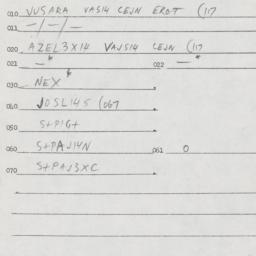 010 VUSARA VAS14 CEJN EROT (117
011 —/—/—
020 AZEL3X14 VAJS14 CEJN (117
021 —* 022 —*
030 NEX*
040 JOSL14S (067
050 S+P1G+
060 S+PAJ14N 061 0
070 S+PAJ3XC